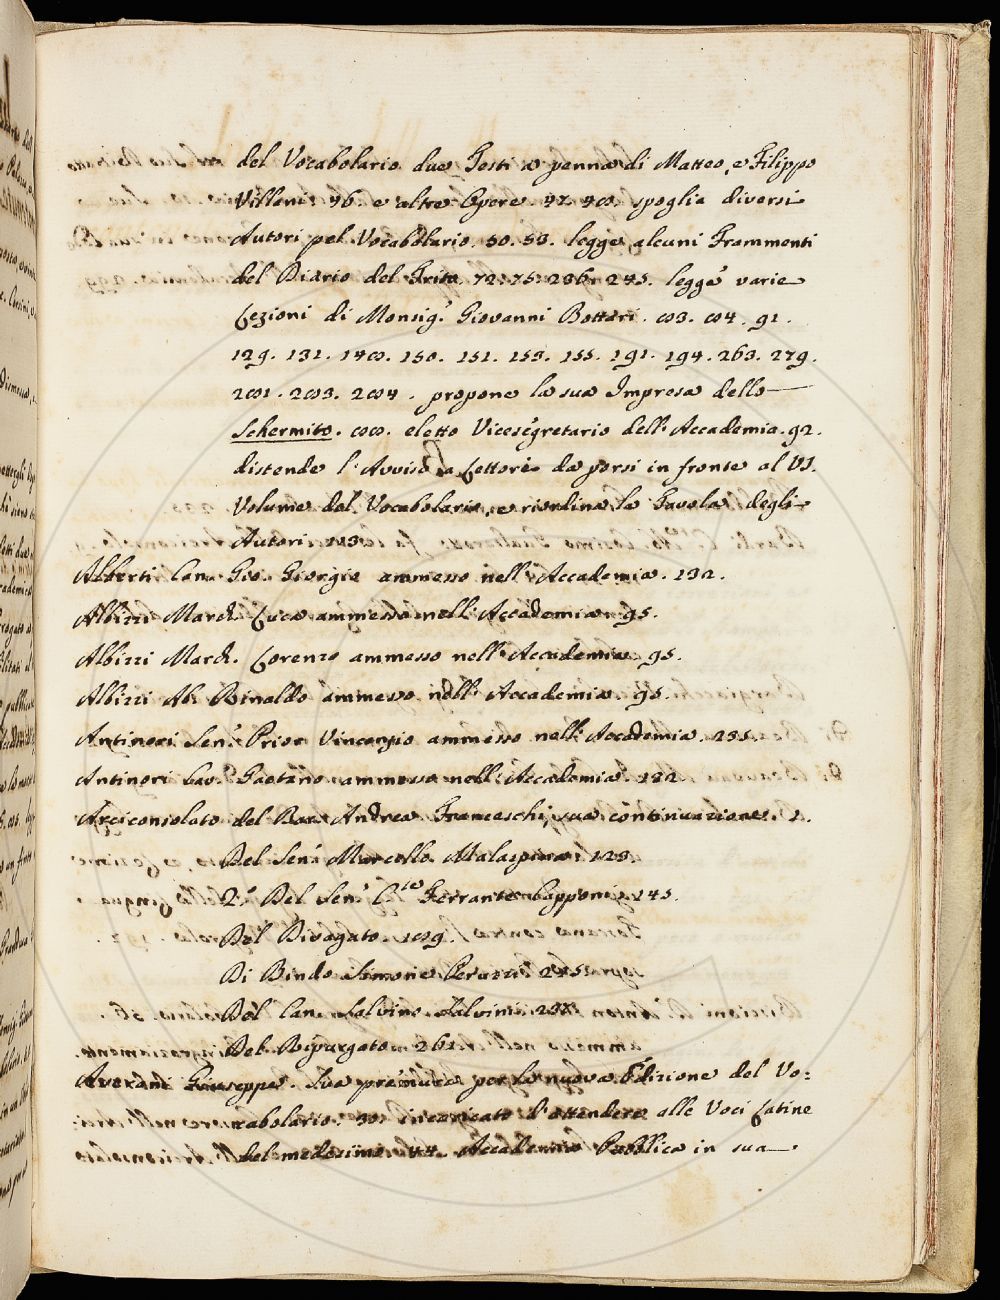 del Vocabolario due Testi a penna di Matteo, e Filippo
Villani. 46. e altre Opere. 47. 48. spoglia diversi
Autori pel Vocabolario. 50. 53. legge alcuni Frammenti
del Diario del Trita. 72. 75. 236. 245. legge varie
Lezioni di Monsig.r Giovanni Bottari. 83. 84. 91.
129. 131. 148. 150. 151. 153. 155. 191. 194. 263. 279.
281. 283. 284. propone la sua Impresa dello
Schermito. 88. eletto Vicesegretario dell'Accademia. 92.
distende l'Avviso a Lettori da porsi in fronte al VI.
Volume del Vocabolario, e riordina la Tavola degli
Autori.
Alberti Can. Gio. Giorgio ammesso nell'Accademia. 132.
Albizzi March. Luca ammesso nell'Accademia. 95.
Albizzi March. Lorenzo ammesso nell'Accademia. 95.
Albizzi Ab. Rinaldo ammesso nell'Accademia. 95.
Antinori Sen.r Prior Vincenzio ammesso nell'Accademia. 235.
Antinori Cav.r Gaetano ammesso nell'Accademia. 132.
Arciconsolato del Bar. Andrea Franceschi, sua continuazione. 1.
Del Sen.r Marcello Malaspina. 123.
2.o Del Sen.r C.te Ferrante Capponi. 145.
Del Divagato. 189.
Di Bindo Simone Peruzzi. 245.
Del Can. Salvino Salvini. 237.
Del Ripurgato. 261.
Averani Giuseppe. Sua premura per la nuova Edizione del Vo=
cabolario. 30. incaricato d'attendere alle Voci Latine
del medesimo. 44. Accademia Pubblica in sua